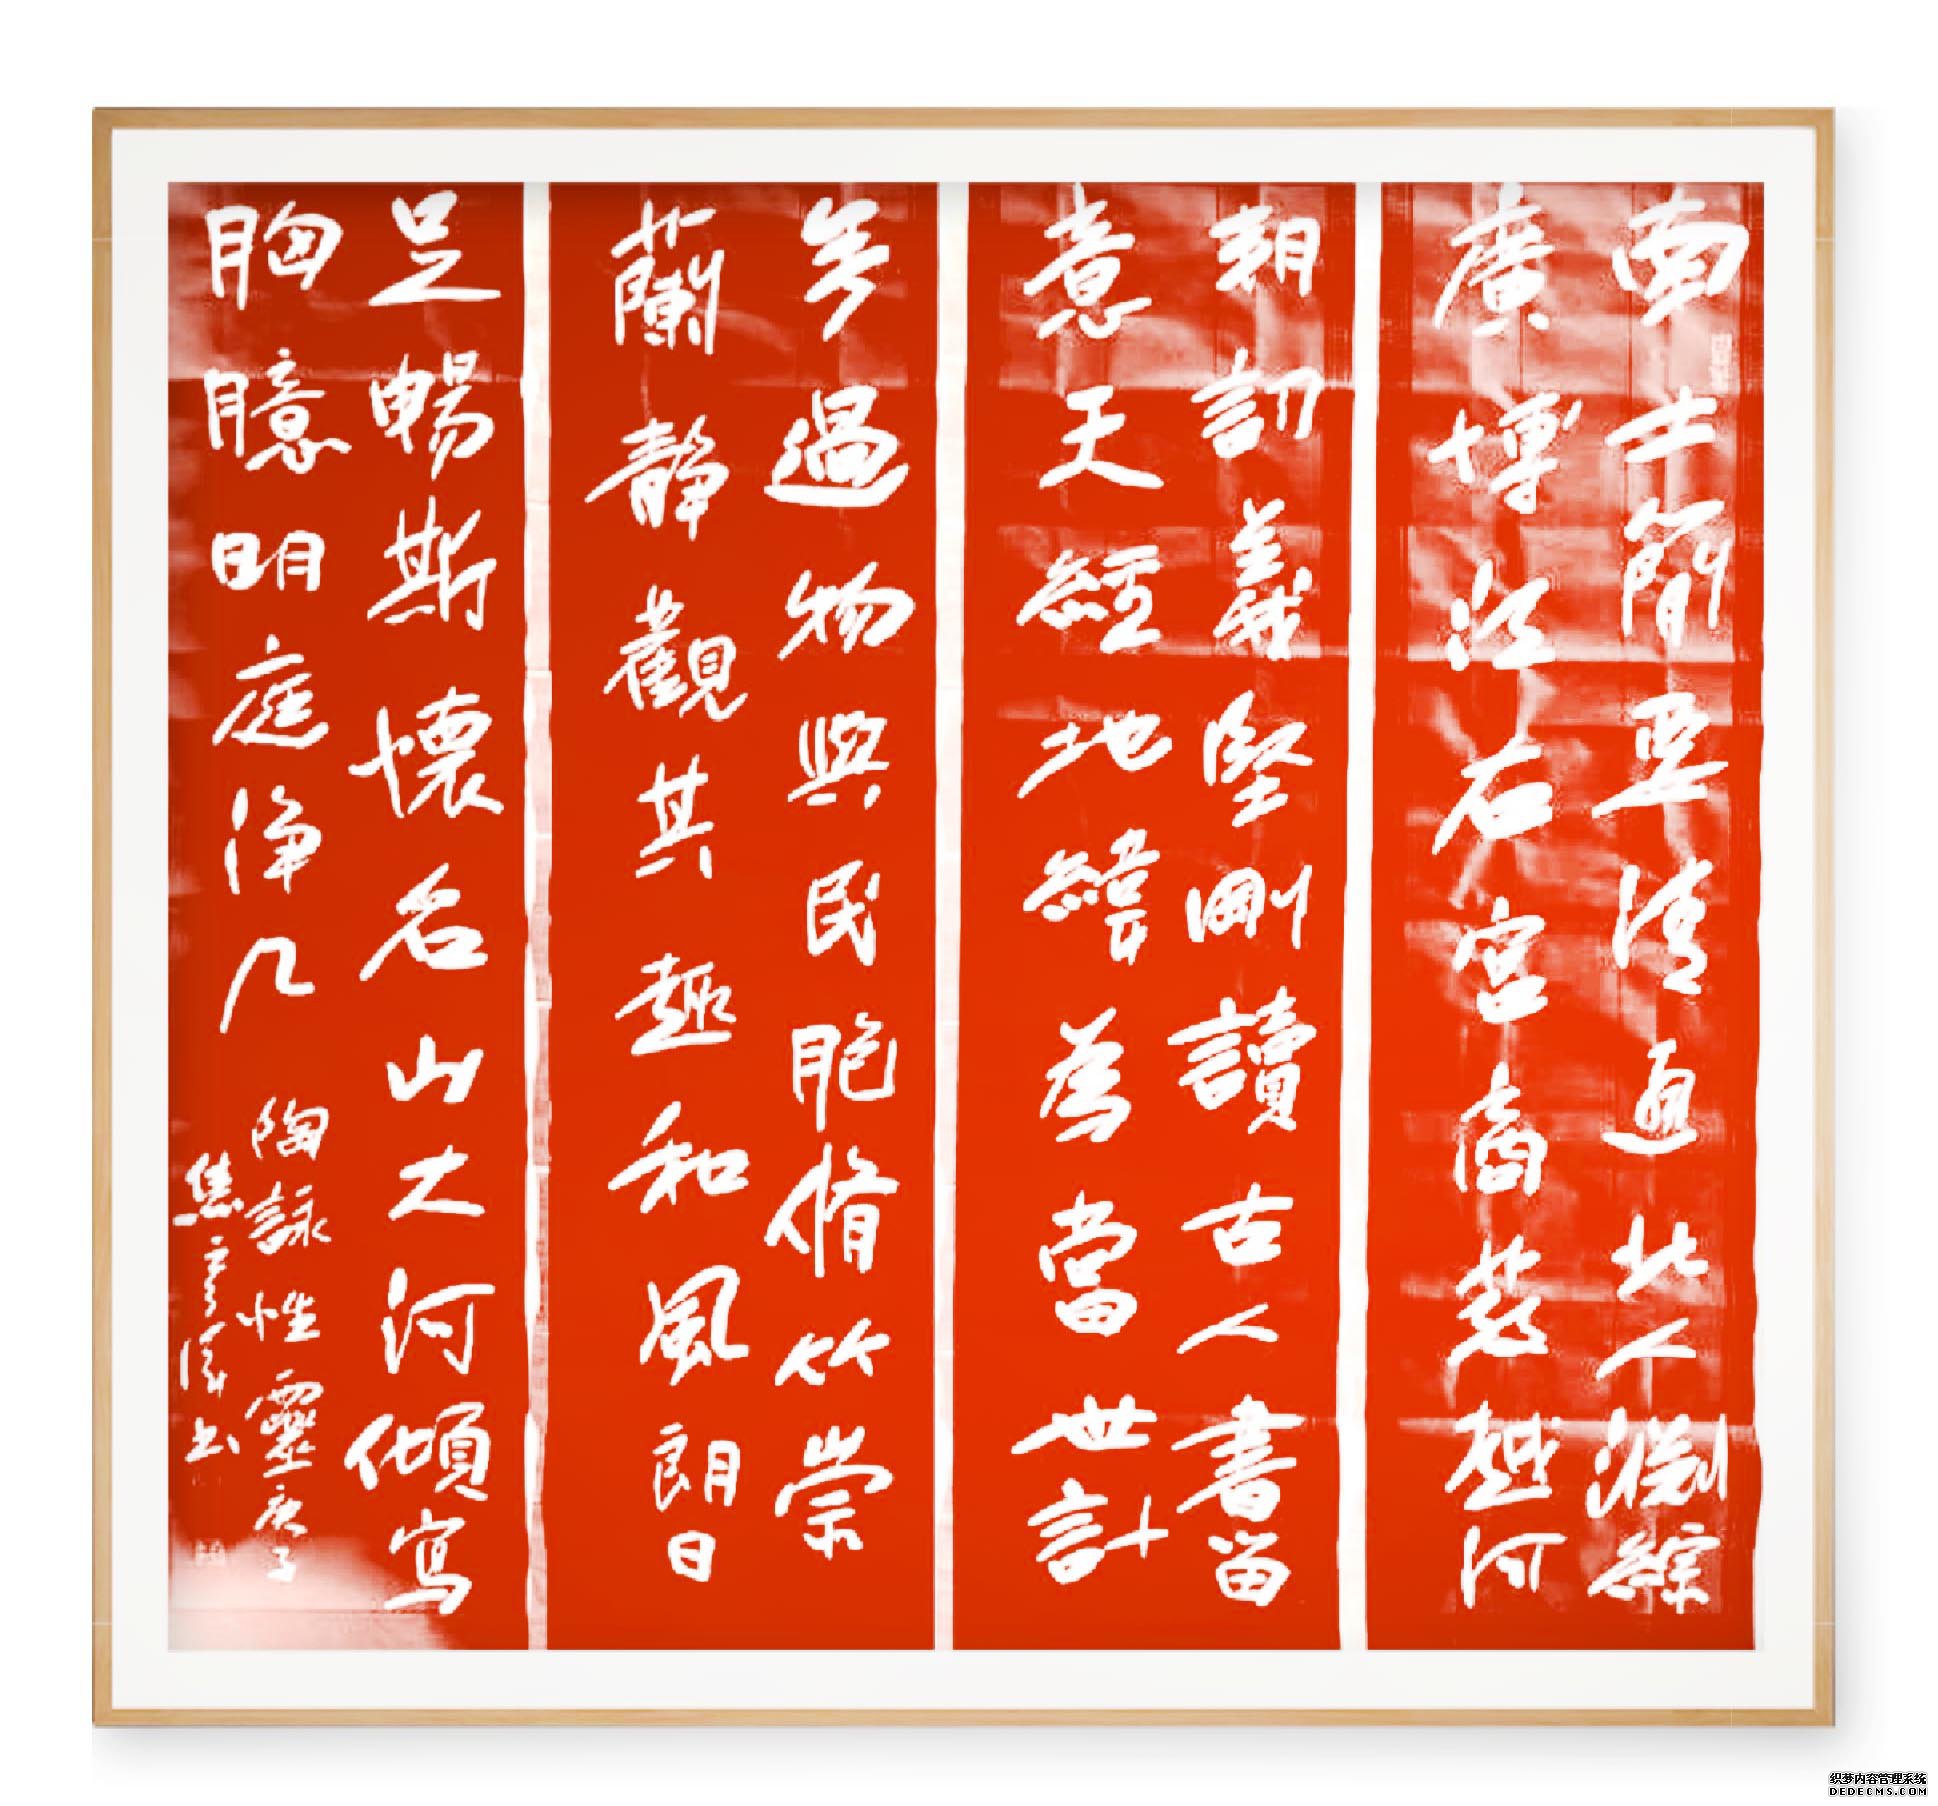 南士簡要清通北人淵綜
廣博江右宮商發越河
朝詞義堅剛讀古人書留
意天經地緯為當世計
矣過物與民胞脩竹崇
蘭靜觀其趣和風朗日
足暢斯懷名山大河傾寫
胸臆明庭淨几
陶詠性靈庚子
焦書
织梦内容管理系统
DEDECMS.COM